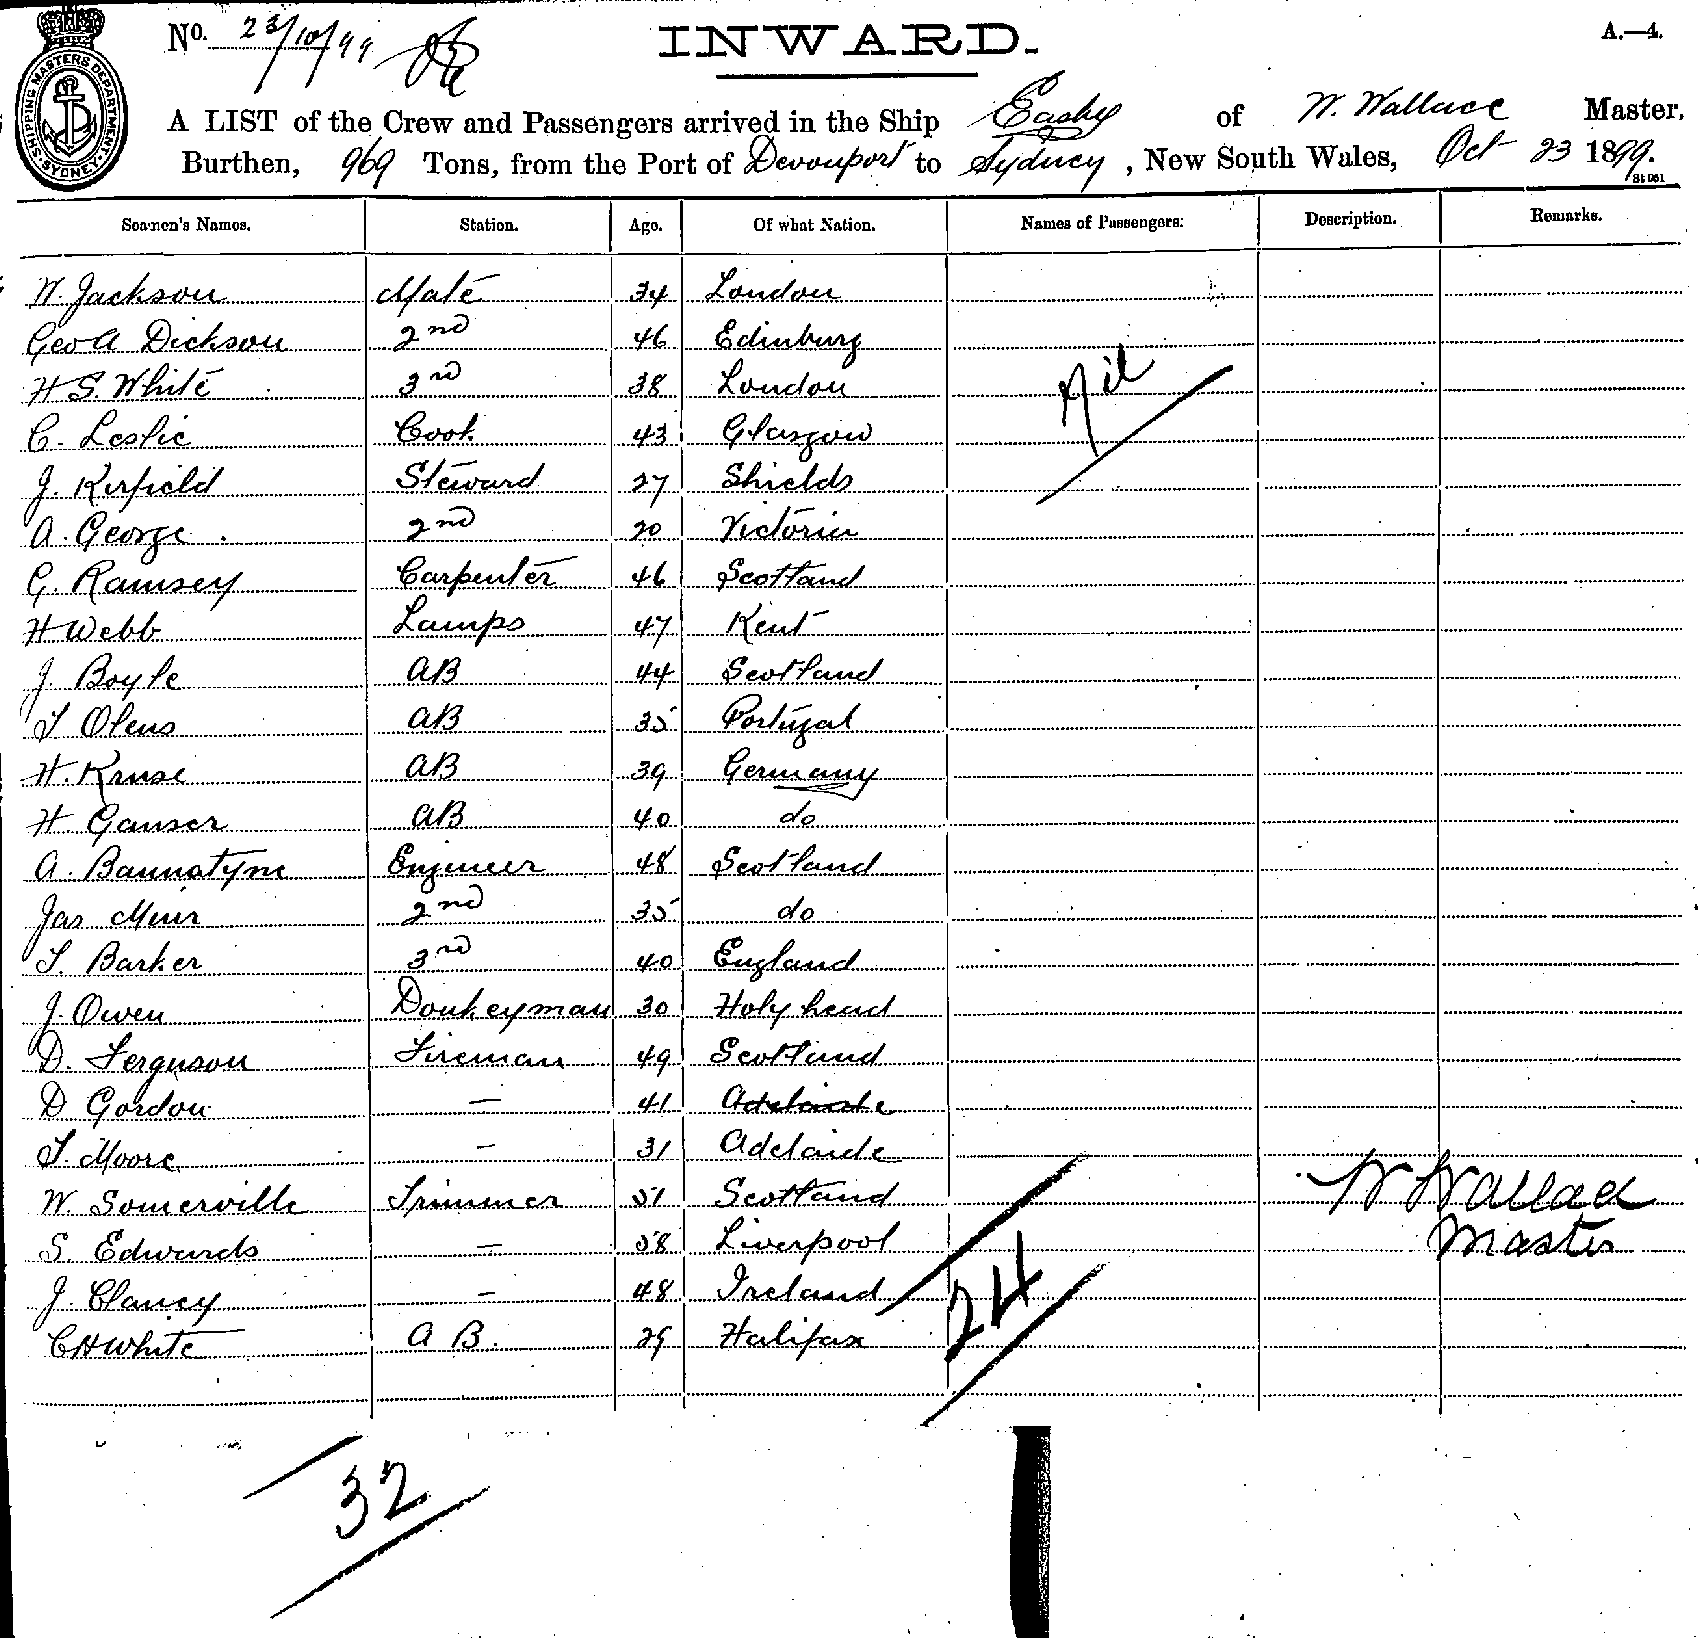 No. 23/10/99
INWARD.
A.—4.
SHIPPING MASTERS DEPARTMENT SYDNEY
A LIST of the Crew and Passengers arrived in the Ship Easby of W. Wallace Master,
Burthen, 969 Tons, from the Port of Devonport to Sydney, New South Wales, Oct 23 1899.
Seamen's Names. Station. Age. Of what Nation. Names of Passengers: Description. Remarks.
W. Jackson Mate 34 London
Geo A Dickson 2nd 46 Edinburg
H S. White 3rd 38 London
Nil
C. Leslie Cook 43 Glasgow
J. Kirfield Steward 27 Shields
A. George 2nd 20 Victoria
G. Ramsey Carpenter 46 Scotland
H Webb Lamps 47 Kent
J Boyle AB 44 Scotland
T Olens AB 35 Portugal
H. Kruse AB 39 Germany
H Ganser AB 40 do
A. Bannatyne Engineer 48 Scotland
Jas Muir 2nd 35 do
T. Barker 3rd 40 England
J. Owen Donkeyman 30 Holyhead
D. Ferguson Fireman 49 Scotland
D Gordon — 41 Adelaide
T. Moore — 31 Adelaide
W. Somerville Trimmer 51 Scotland
W Wallace
S. Edwards — 58 Liverpool
Master
J. Clancy — 48 Ireland
24
C H White A B. 29 Halifax
32